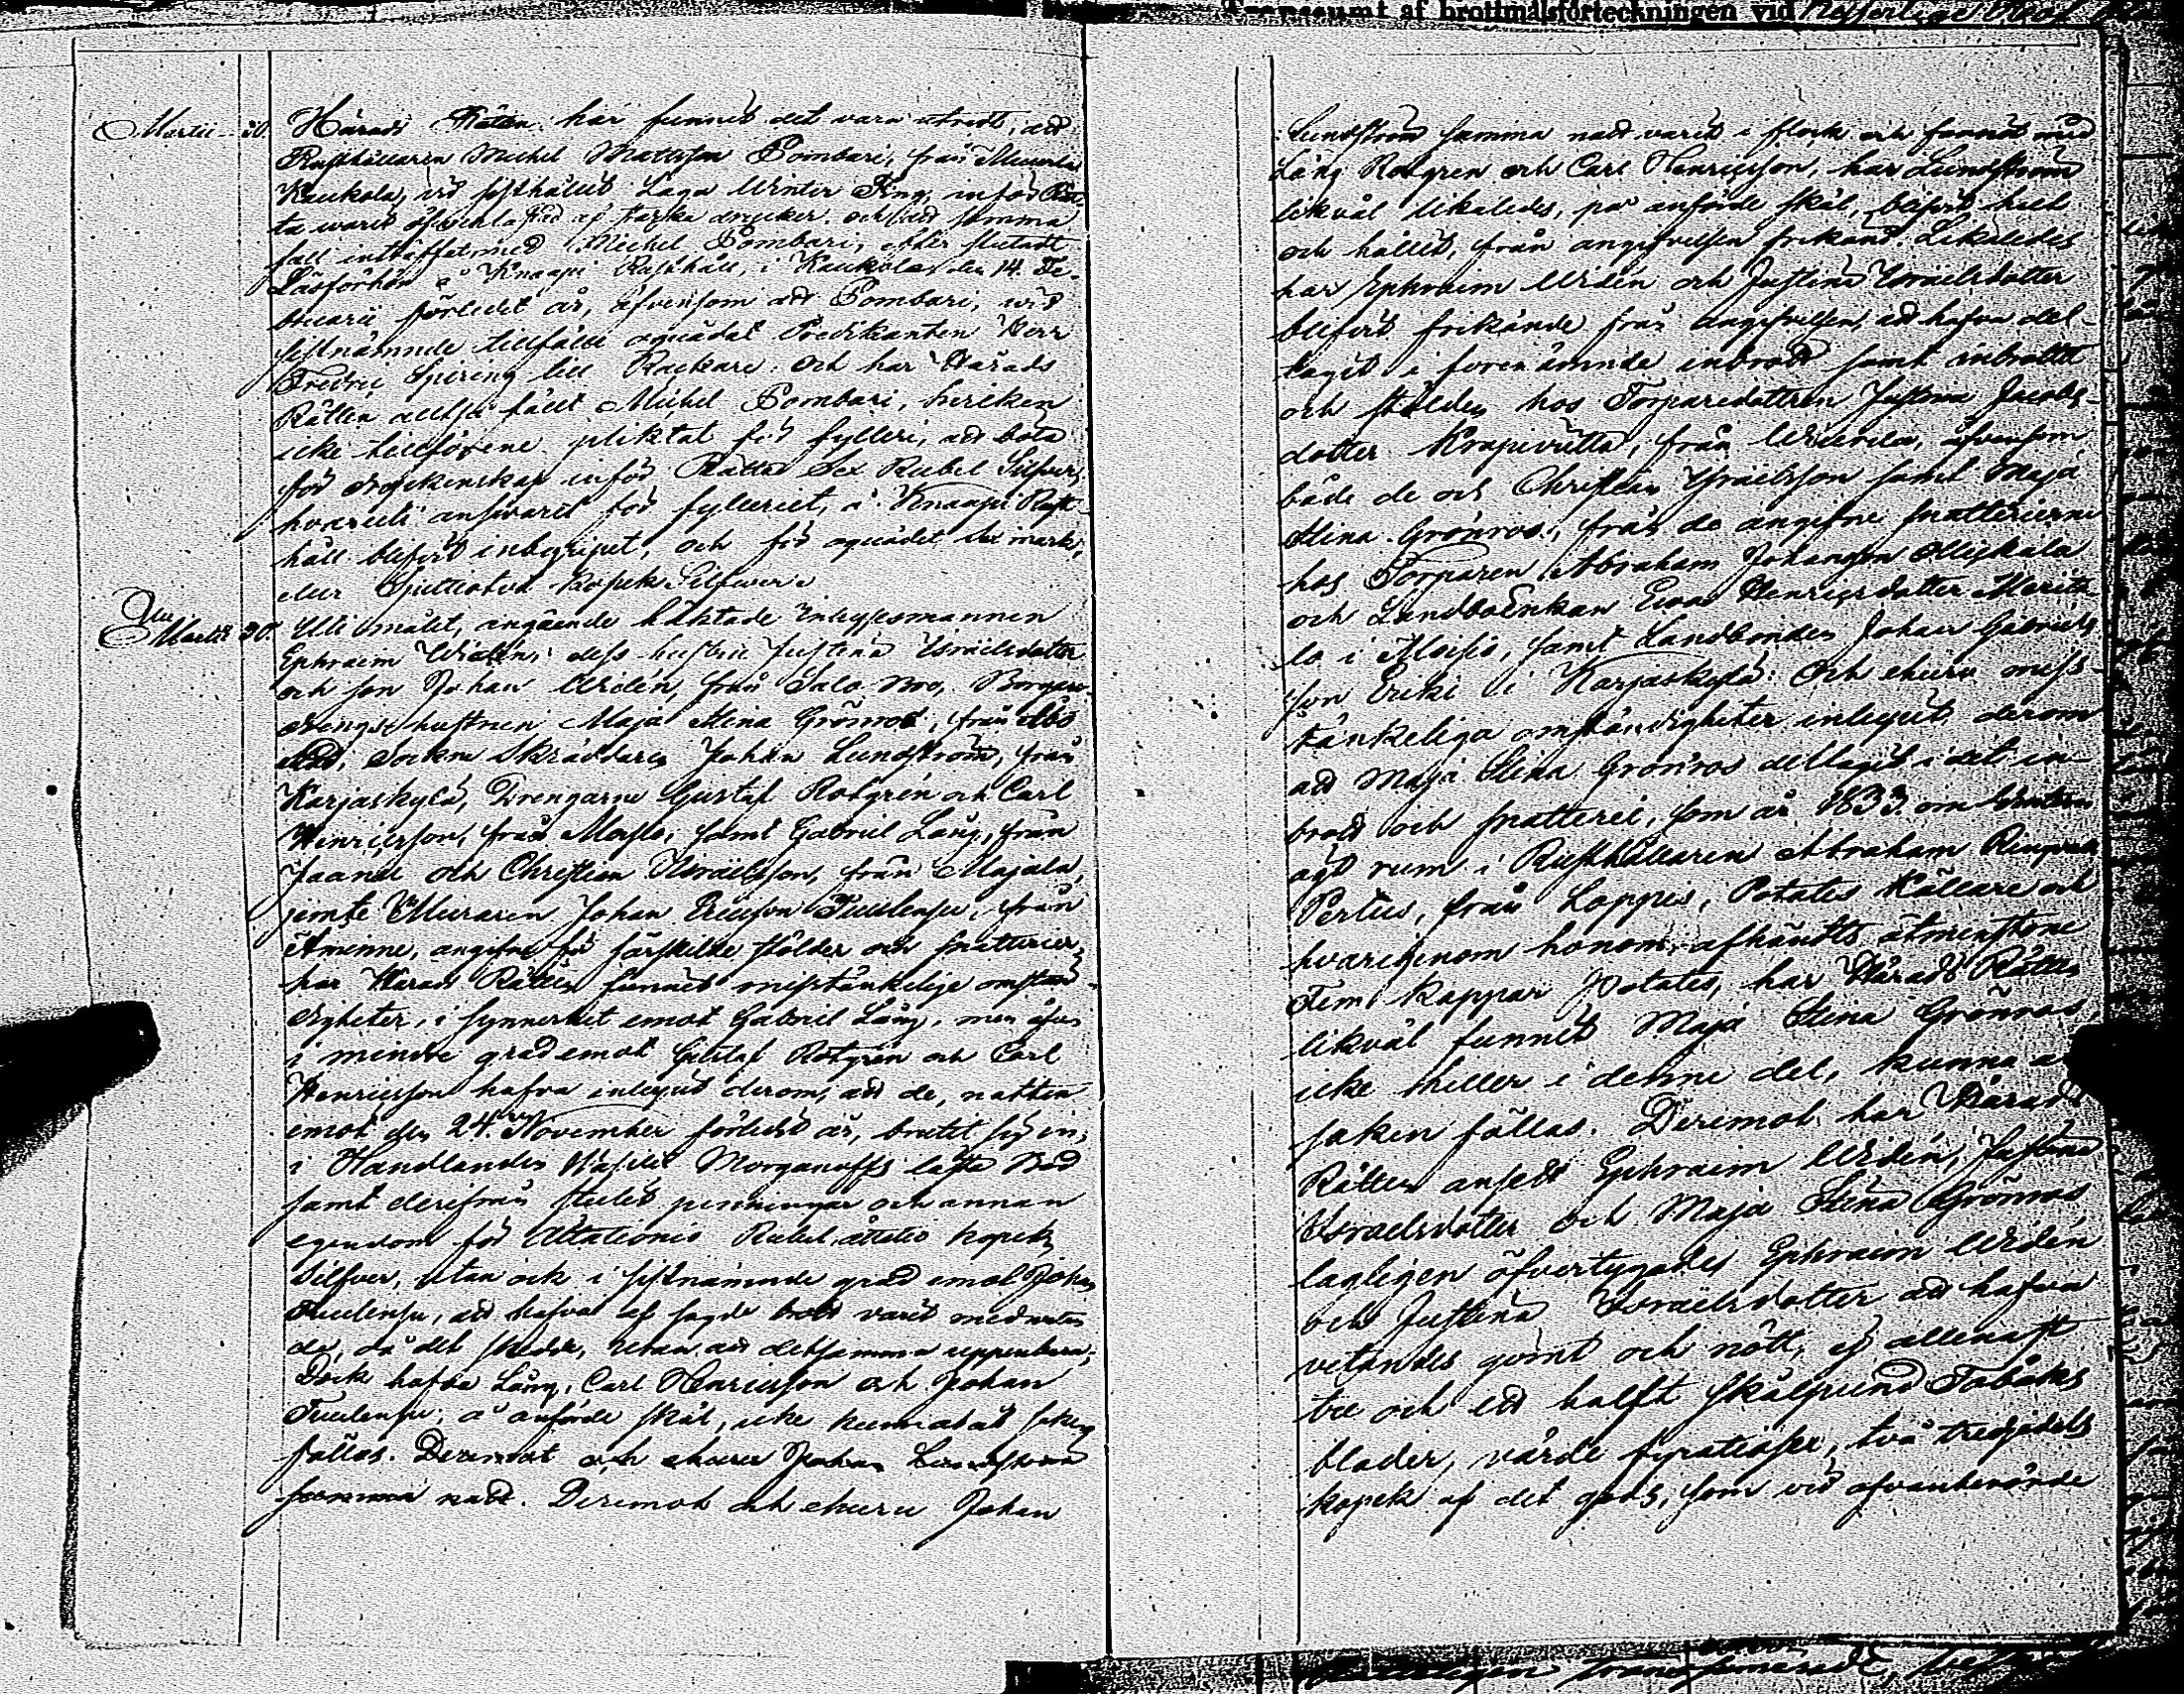 Transsumt af brottmålsförteckningen vid
Martii 30. Härads Rätten har funnit det vara utredt, att
Rusthållaren Michel Mattsson Pombari, från
Kaukola, vid sisthållit Laga Winter Ting, inför Rät
ta warit öfverlastad af starka drycker, och att samma
fall inträffat med Michel Pombari, efter slutadt
Läsförhör å Knaapi Rusthåll, i Kaukola den 14. Fe-
bruarii förledet år, äfvensom att Pombari, vid
sistnämnde tillfälle oquädat Predikanten Herr
Fredric Spiring till Rackare: och har Härads
Rätten alltså fällt Michel Pombari, hvilken
icke tillförene pliktat för fylleri, att böta
för dryckenskap inför Rätta Sex Rubel Silfver,
hvaruti ansvaret för fylleriet, å Knaapi Rust-
håll blifvit inbegripet, och för oquädet mark,
eller kopek Silfver.
Martii 30. Uti målet, angående häktade Inhysesmannen
Ephraim Widén, dess hustru Justina Israelsdotter
och son Johan Widén, från Salo Bro, Borgare-
drengs hustrun Maja Stina Grönros, från Åbo
stad, Socken Skräddaren Johan Lundström, från
Karjaskylä, Drengarne Gustaf Rotgrén och Carl
Henricsson, från samt Gabriel Lång, från
och Christian Israelsson, från Majala,
jemte Muraren Johan Ericsson Tuulensu, från
Åminne, angifne för särskilde stölder och snatterier,
har Härads Rätten funnit misstänkelige omstän-
digheter, i synnerhet emot Gabriel Lång, men äfven
i mindre grad emot Gustaf Rotgrén och Carl
Henricsson hafva inlupit derom, att de, natten
emot den 24. November förledit år, brutit sig in,
i Handlanden Morganoffs låsta Bod
samt derifrån stulit penningar och annan
egendom för Rubel åttatio kopek
Silfver, utan ock i sistnämnde grad emot Johan
Tuulensu, att hafva af sagde brott varit medvetan
de, då det skedde, utan att detsamma uppenbara;
Dock hafva Lång, Carl Henricsson och Johan
Tuulensu, å anförde skäl, icke kunnat åt saken
fällas. Deremot och ehuru Johan Lundström
samma natt. Deremot och ehuru Johan
Lundström samma natt varit i flock och förening med
Lång Rotgren och Carl Henricsson, har Lundström
likväl likaledes, på anförde skäl, blifvit helt
och hållit, från angifvelsen frikänd. Likaledes
har Ephraim Widén och Justina Israelsdotter
blifvit frikände från angifvelsen, att hafva del-
tagit i förenämnde inbrott samt inbrottet
och stölden hos Torparedottren Justina Jacobs-
dotter från äfvensom
både de och Christian Israelsson samt Maja
Stina Grönros, från de angifne snatterierne
hos Torparen Abraham Johansson
och Landboenkan Ewa Henricsdotter
la i samt Landbonden Johan Gabriels
son Eriki i Karjaskylä. Och ehuru miss-
tänkeliga omständigheter inlupit, derom
att Maja Stina Grönros deltagit i det in-
brott och snatteri, som år 1833 om
ägt rum i Rusthållaren Abraham
Pertus, från Loppis, Potates Källare och
hvarigenom honom afhändts åtminstone
Fem kappar Potates, har Härads Rätten
likväl funnit Maja Stina Grönros
icke heller i denne del, kunna åt
saken fällas. Deremot har Härads
Rätten ansedt Ephraim Widén, Justina
Israelsdotter och Maja Stina Grönros
lagligen öfvertygades Ephraim Widén
och Justina Israelsdotter att hafva
vetandes gömt och nött, ej allenast
tre och ett halft skålpund Tobaks
blader, värde fyratiosex, två tredjedels
kopek af det gods, som vid ofvanberörde